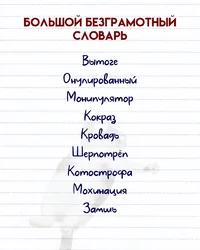 БОЛЬШОЙ БЕЗГРАМОТНЫЙ
СЛОВАРЬ
Вытоге
Онулированный
Монипулятор
Кокраз
Кровадь
Шерпотрёп
Котострофа
Мохинация
Замшь